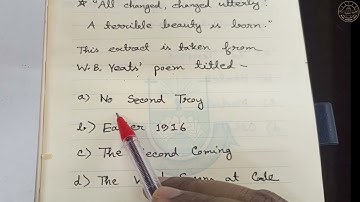 ★ "All changed, changed utterly:
A terrible beauty is born."
This extract is taken from
W.B. Yeats' poem titled -
a) No Second Troy
b) Easter 1916
c) The Second Coming
d) The at Cole